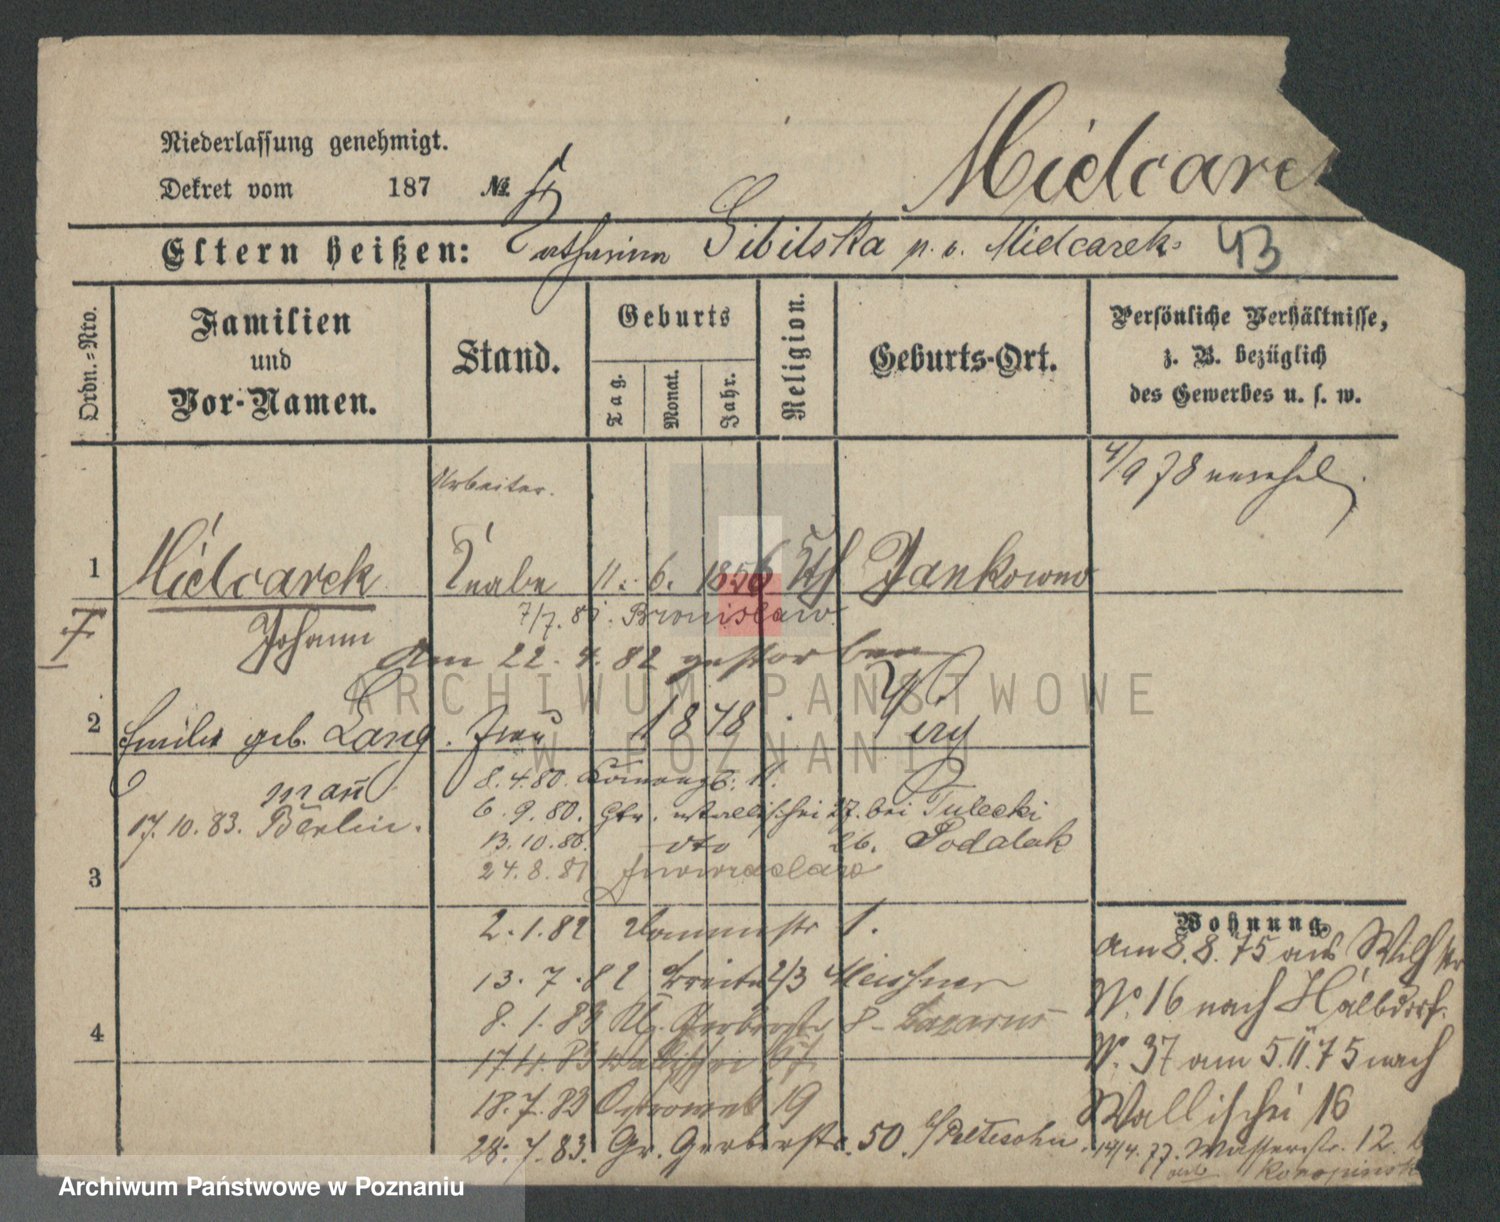 Niederlassung genehmigt.
Dekret vom 187 №
Mielcarek
Eltern heißen: Catharina Sibilska n. v. Mielcarek 43
Ordn.-Nro.
Familien und Vor-Namen.
Stand.
Geburts
Tag.
Monat.
Jahr.
Religion.
Geburts-Ort.
Persönliche Verhältnisse,
z. B. bezüglich
des Gewerbes u. s. w.
Arbeiter.
4/9 78
1 Mielcarek Knabe 11. 6. 1856 Kth Jankowo
7/7. 81. Bronislaw
Johann
Am 22. 4. 82 gestorben
2 Emilie geb. Lang. Frau 1878
8. 4. 80.
17. 10. 83. Berlin.
6. 9. 80. Gr. Wallischei 27. bei Tulecki
13. 10. 80. dto 26. Podalak
24. 8. 81 Inowraclaw
3
2. 1. 82 Dammstr 1.
13. 7. 82 Breite 2/3 Meissner
8. 1. 83 Kl. Gerberstr 8 - Lazarus
4
17. 4. 83 Wallischei 67
18. 7. 83 Ostrowek 19
28. 7. 83. Gr. Gerberstr. 50.
Wohnung.
Am 8. 8. 75 aus Wilh str
N. 16 nach Halbdorf.
N. 37 am 5. 11. 75 nach
Wallischei 16
14/4. 77. Wasserstr. 12.
ARCHIWUM PAŃSTWOWE
W POZNANIU
Archiwum Państwowe w Poznaniu